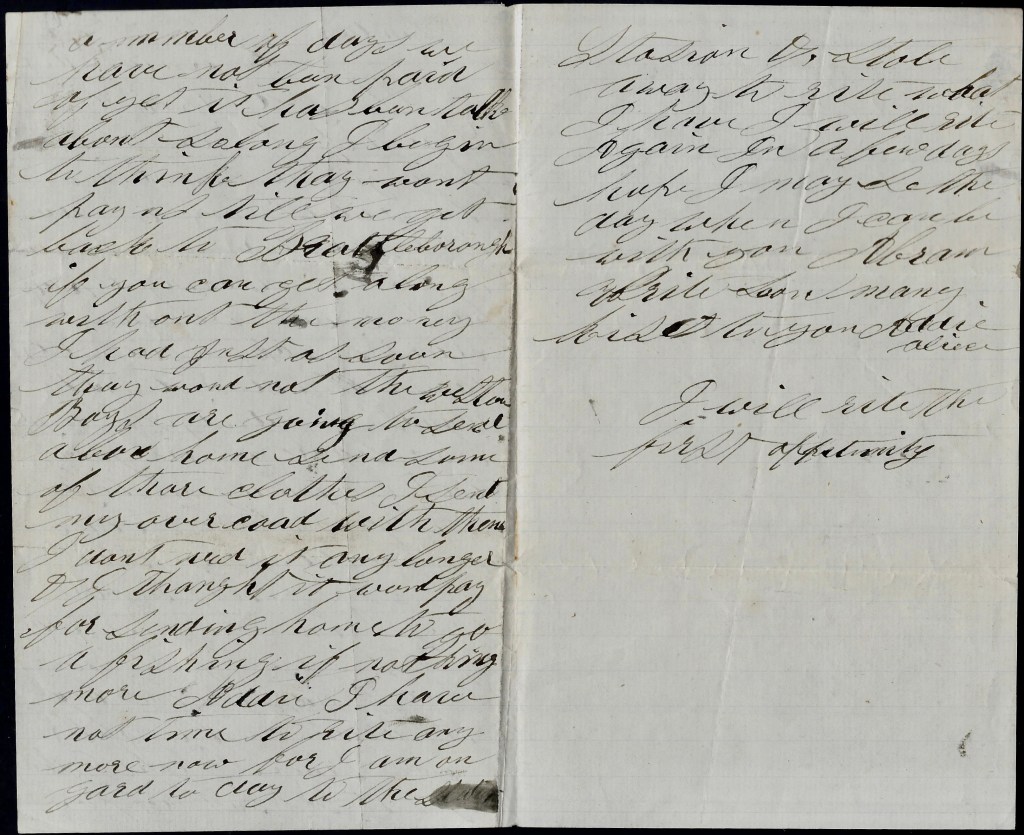 a number of days we
have not ben paid
of yet it has ben talk
about So long I begin
to think thay wont
pay us till we get
back to Brattleborough
if you can get along
with out the money
I had Just as Soon
thay wood not the weston
Boys are going to Send
a box home Send some
of thare clothes I Sent
my over coad with them
I dont ned it any longer
& I thought it wood pay
for Sending home to go
a fishing if nothing
more Addie I have
not time to rite any
more now for I am on
gard to day to the
Stasion & Stole
away to rite what
I have I will rite
Again In a few days
hope I may Se the
day when I can be
with you Abram
Rite Soon many
kises to you Addie
alice
I will rite the
first oppitunity